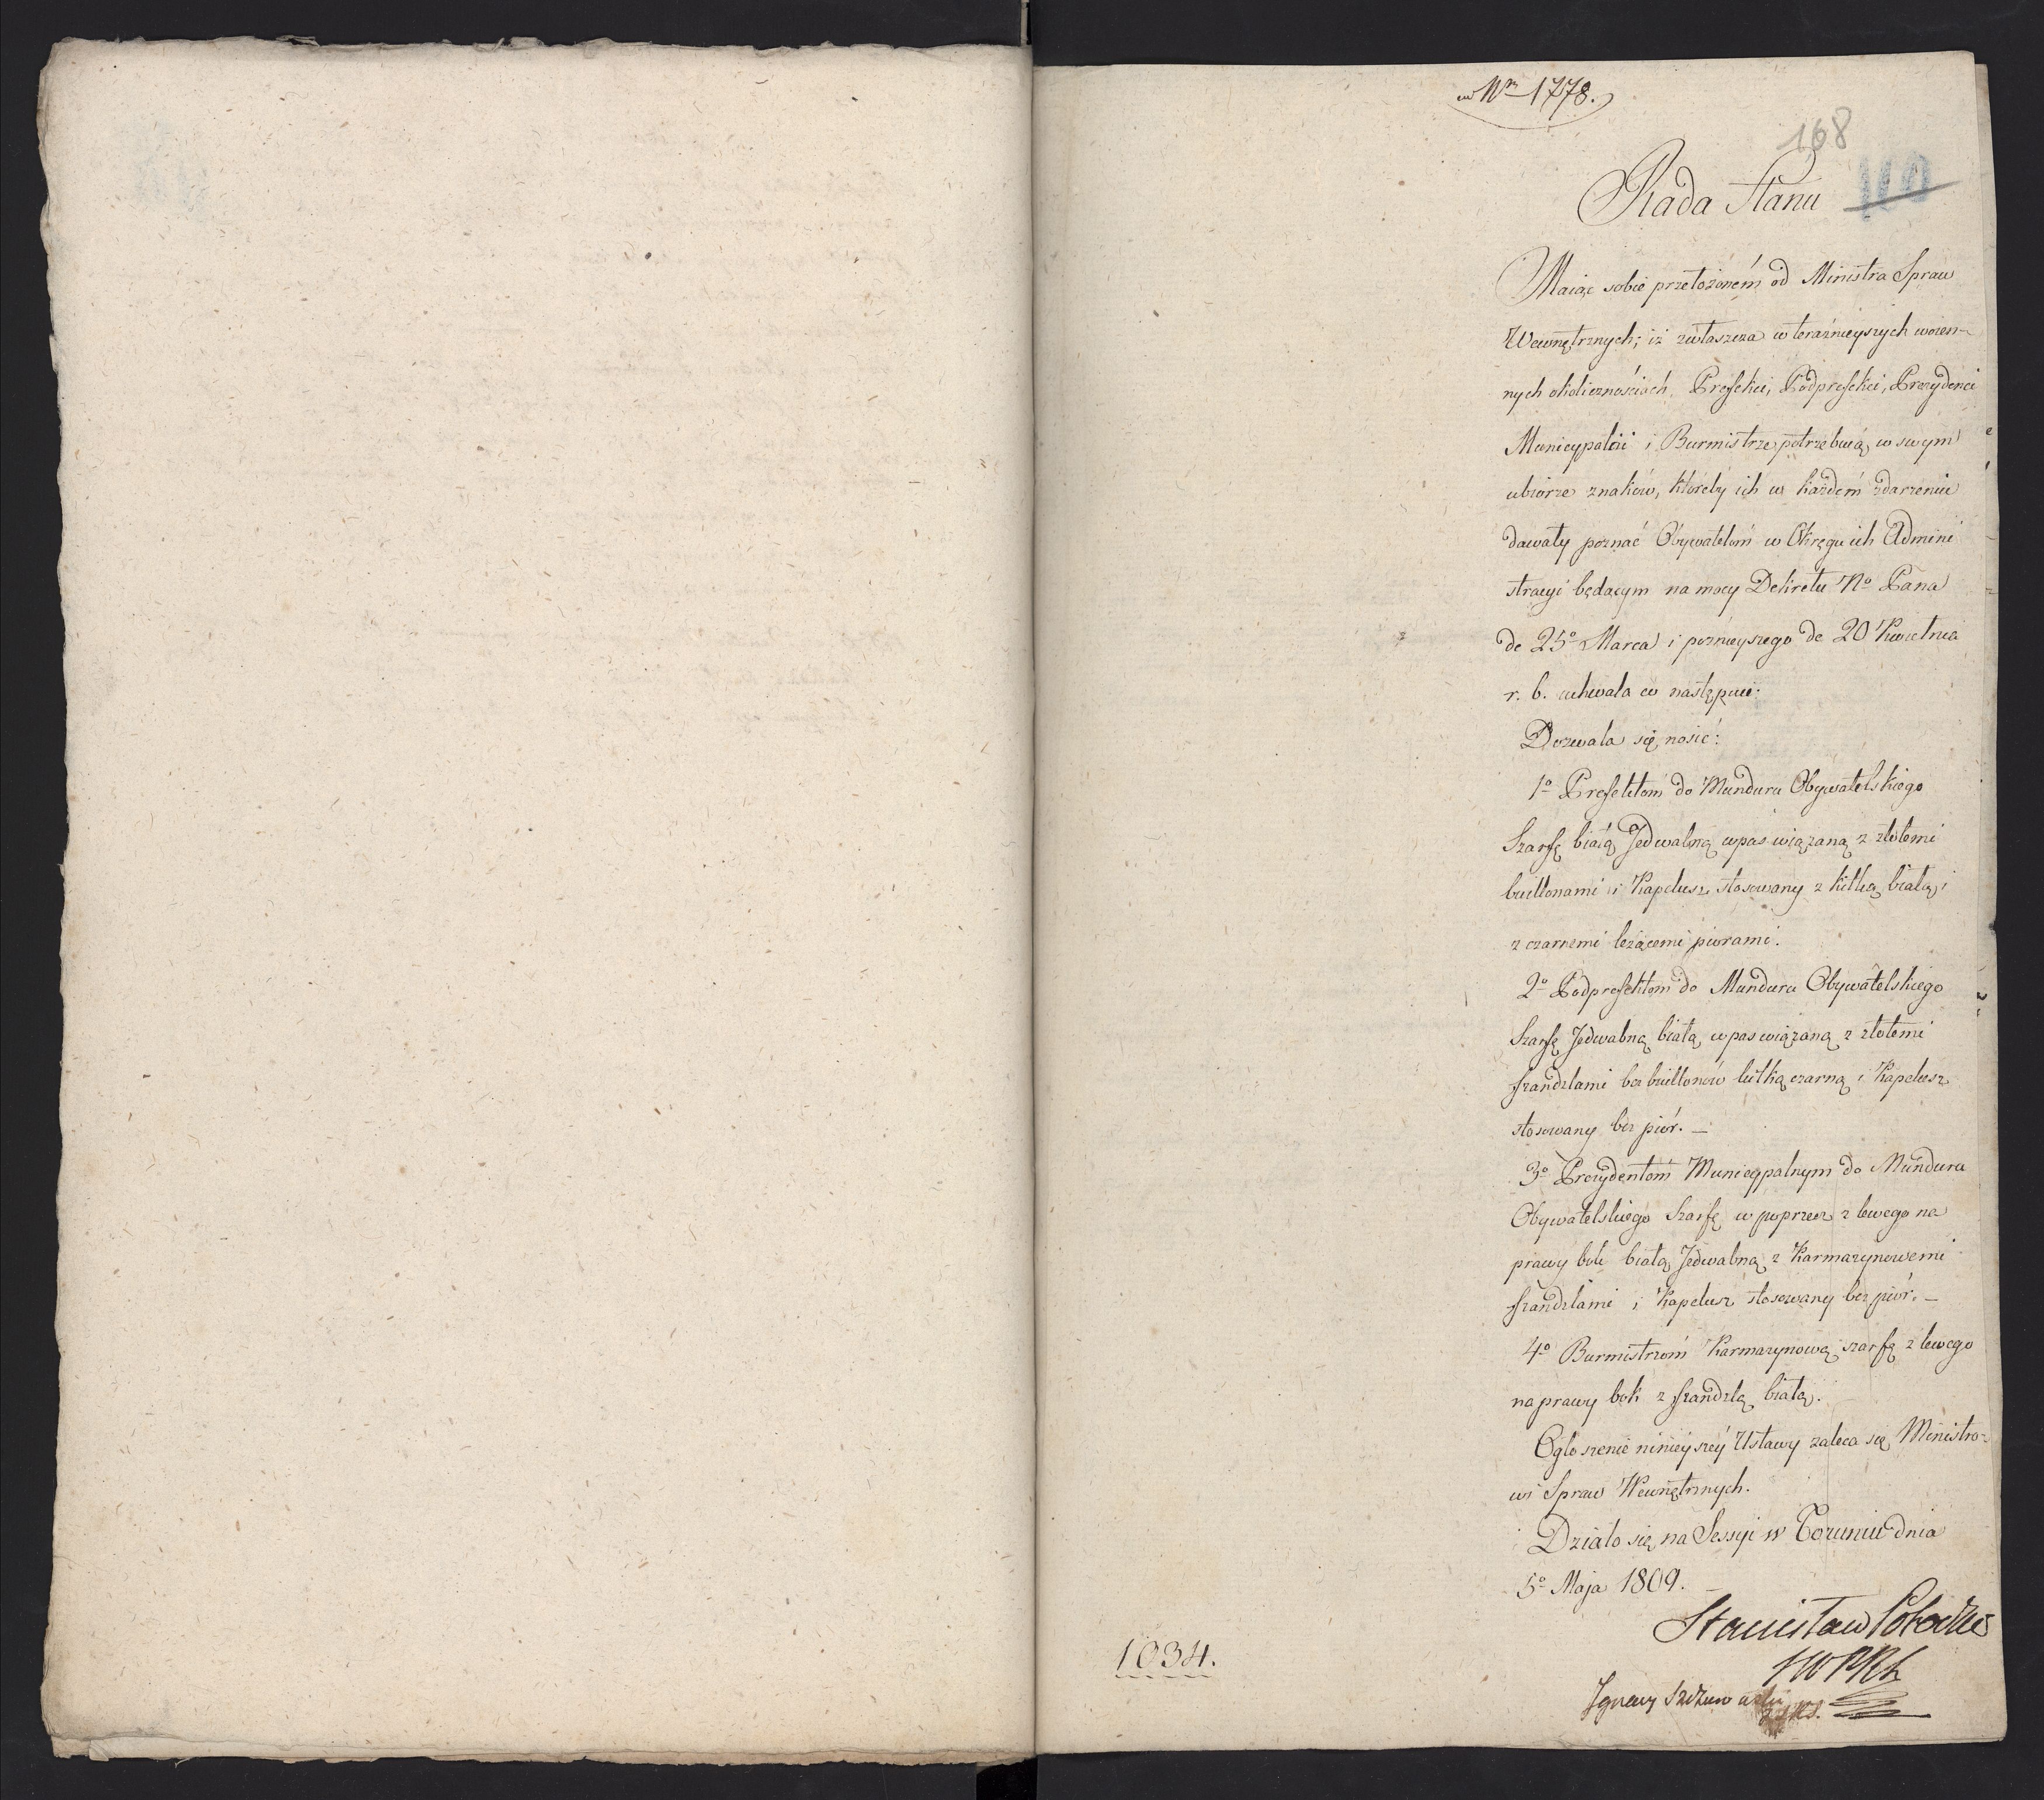 ad Nrm 1778.
108
110
Rada Stanu
Maiąc sobie przełożoném od Ministra Spraw
Wewnętrznych, iż zwłaszcza w teraźnieyszych woien-
nych okolicznościach, Prefekci, Podprefekci, Prezydenci
Municypalni i Burmistrze potrzebuią w swym
ubiorze znaków, któreby ich w każdém zdarzeniu
dawały poznać Obywatelóm w Okręgu ich Admini
stracyi będącym na mocy Dekretu No Pana
de 25o Marca i poźnieyszego de 20 Kwietnia
r. b. uchwala co następuie:
Dozwala się nosić:
1o Prefektom do Munduru Obywatelskiego
Szarfę białą Jedwabną w pas wiązaną z złotemi
buillonami i Kapelusz stosowany z kitką białą i
z czarnemi leżącemi piorami.
2o Podprefektom do Munduru Obywatelskiego
Szarfę Jedwabną białą w pas wiązaną z złotemi
frandzlami bez buillonów kitką czarną i Kapelusz
stosowany bez piór. —
3o Prezydentóm Municypalnym do Munduru
Obywatelskiego Szarfę w poprzecz z lewego na
prawy bok białą Jedwabną z Karmazynowemi
frandzlami i Kapelusz stosowany bez piór. —
4o Burmistrzóm Karmazynową szarfę z lewego
na prawy bok z frandzlą białą.
Ogłoszenie ninieyszéy Ustawy zaleca się Ministro-
wi Spraw Wewnętrznych.
Działo się na Sessyi w Toruniu dnia
5o Maja 1809.
Stanisław Potocki
1034.
Ignacy